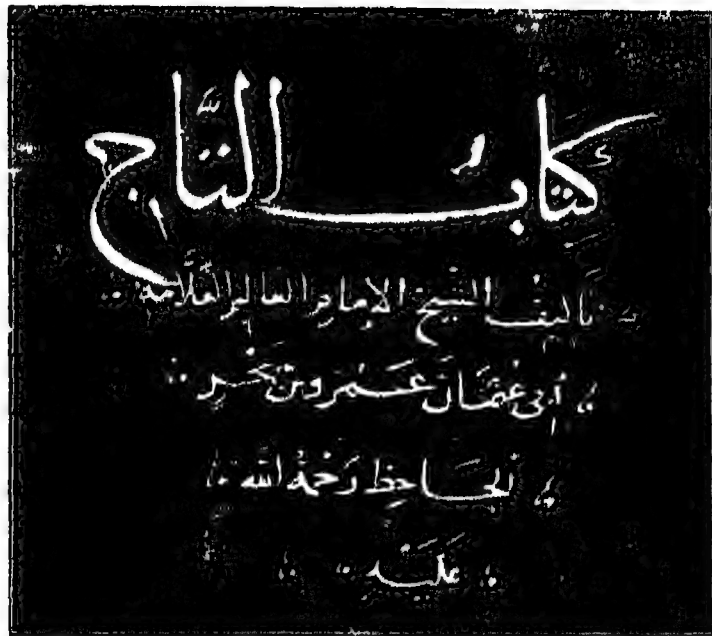 كتابُ التَّاج
تأليف الشيخ الإمام العالم العلّامة
أبي عُثمَانَ عَمرو بن بَحْر
الجَاحِظ رَحْمَةُ الله
عَلَيْه